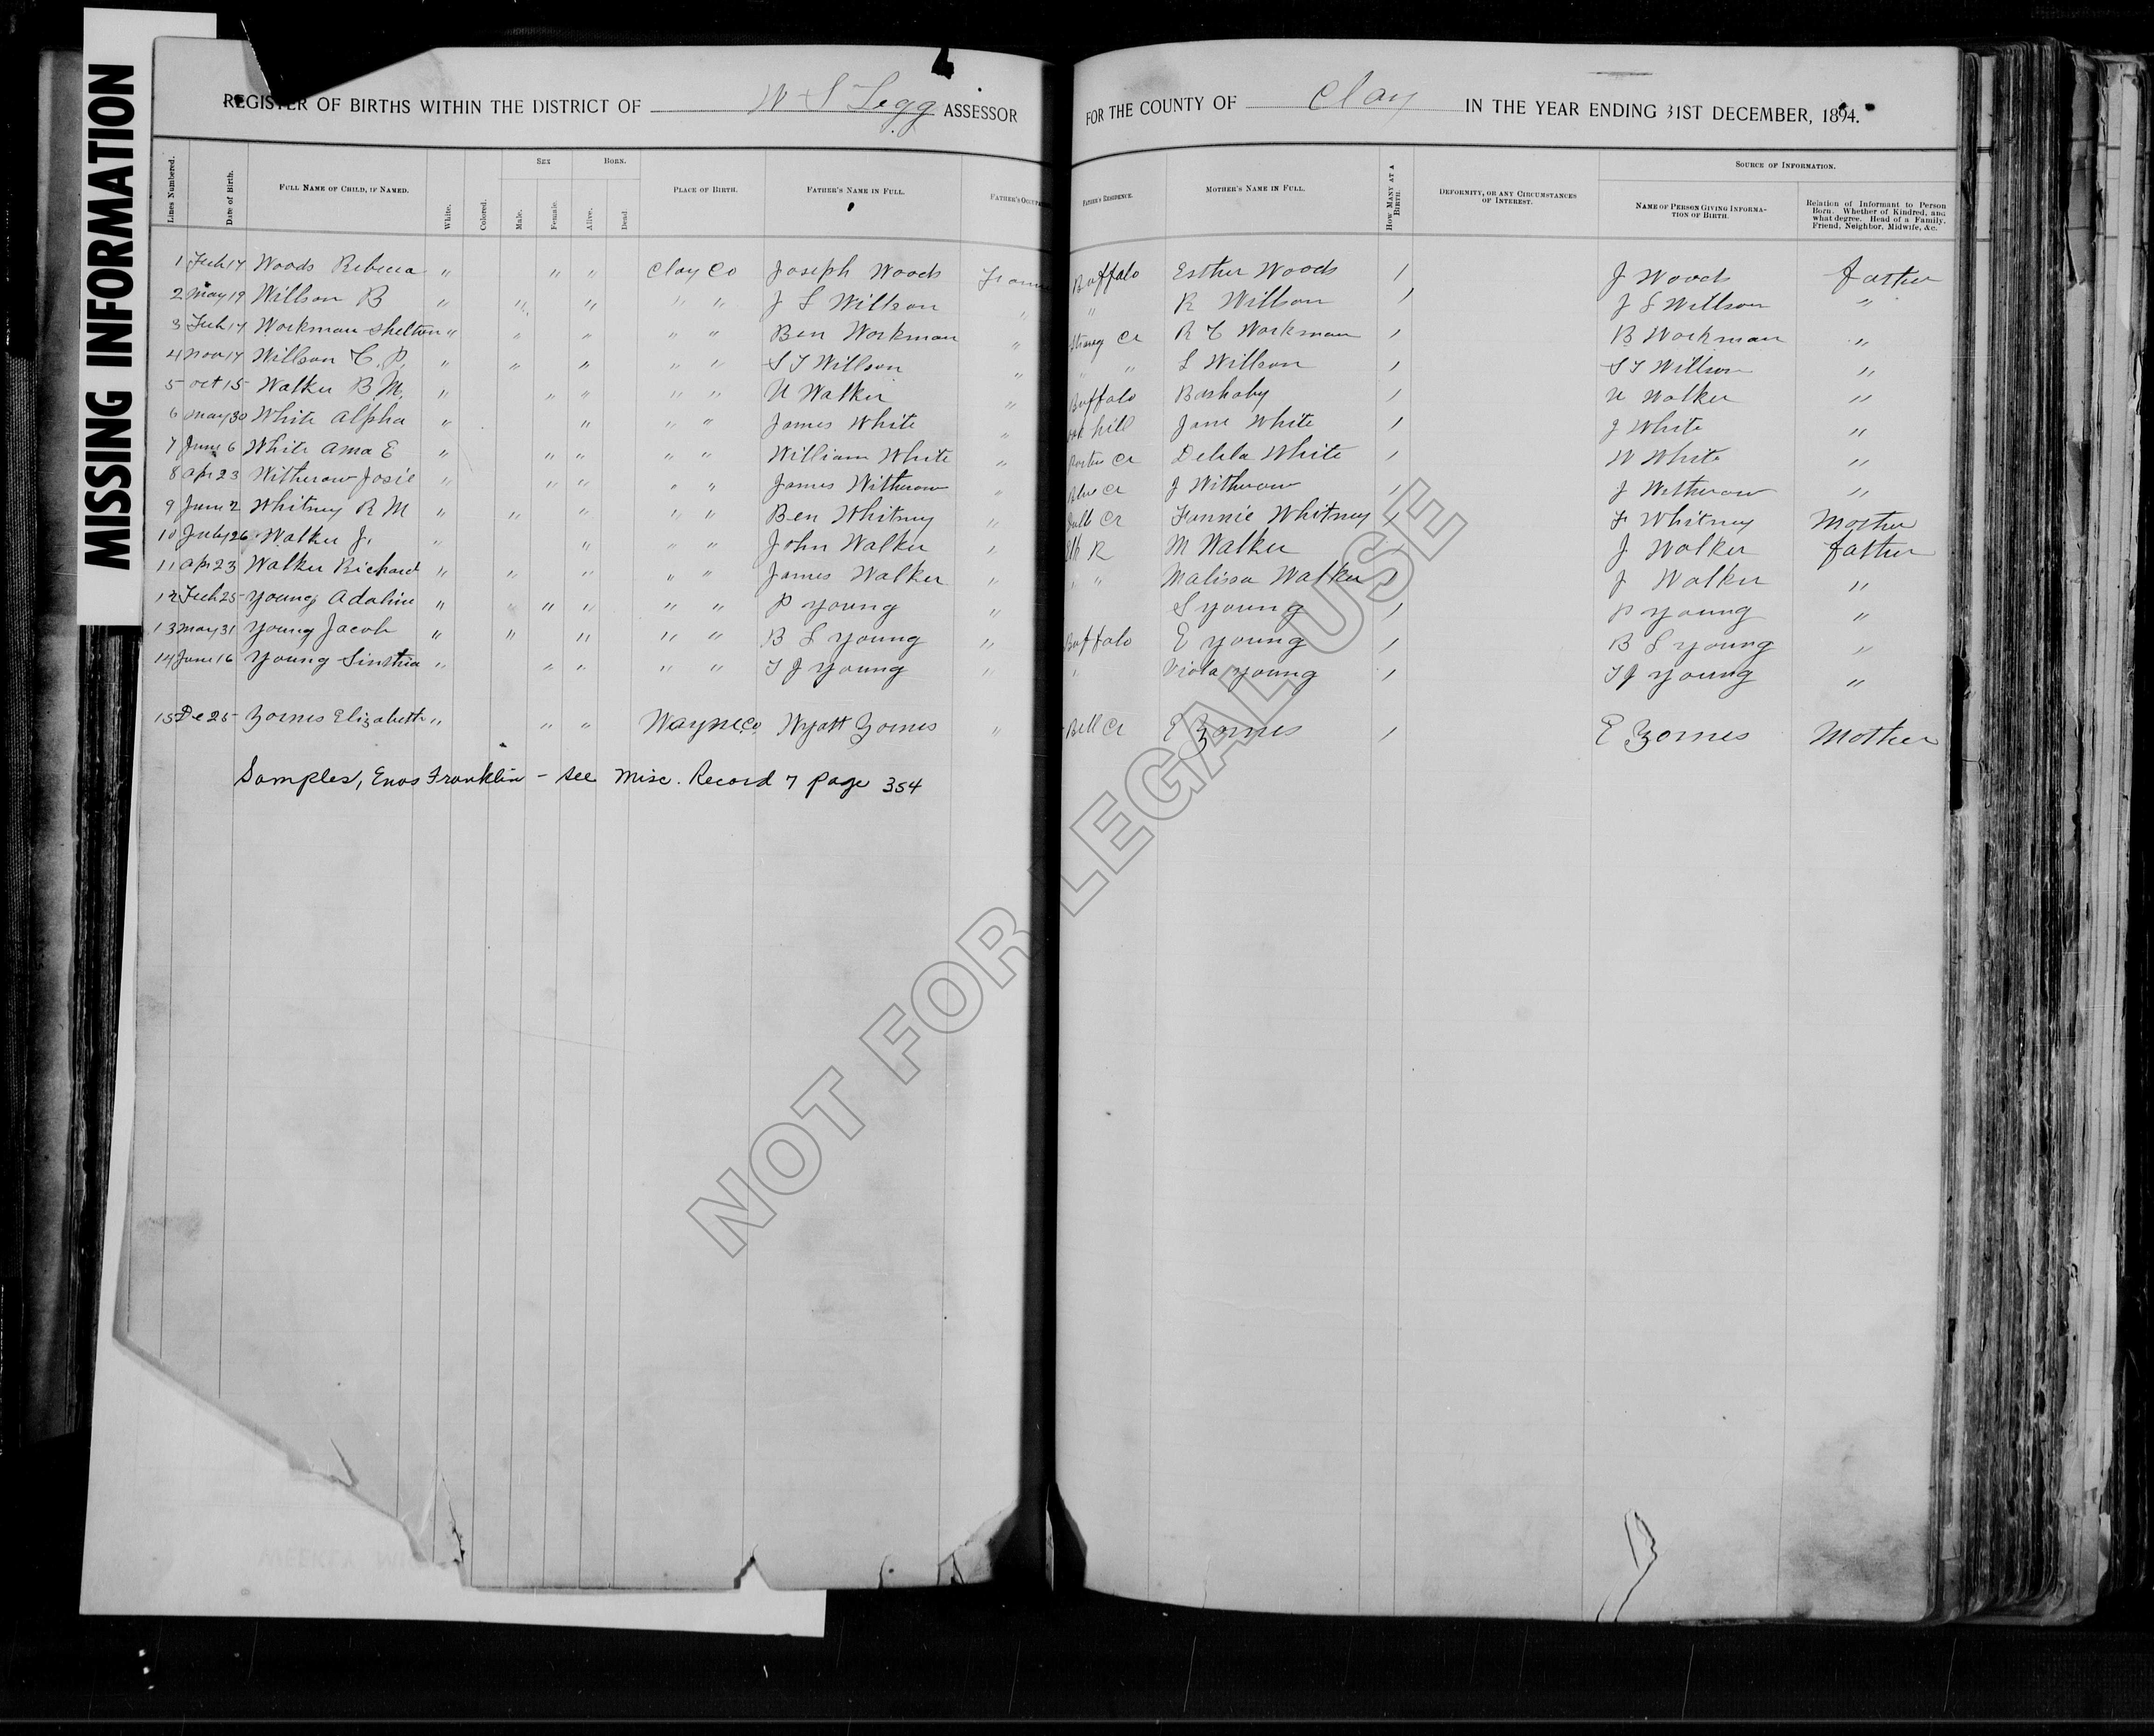 MISSING INFORMATION
REGISTER OF BIRTHS WITHIN THE DISTRICT OF W S Legg ASSESSOR FOR THE COUNTY OF Clay IN THE YEAR ENDING 31ST DECEMBER, 1894.
Lines Numbered. Date of Birth. FULL NAME OF CHILD, IF NAMED. White. Colored. SEX Male. Female. BORN. Alive. Dead. PLACE OF BIRTH. FATHER'S NAME IN FULL. FATHER'S OCCUPA FATHER'S RESIDENCE. MOTHER'S NAME IN FULL. HOW MANY AT A BIRTH. DEFORMITY, OR ANY CIRCUMSTANCES OF INTEREST. SOURCE OF INFORMATION. NAME OF PERSON GIVING INFORMATION OF BIRTH. Relation of Informant to Person Born. Whether of Kindred, and what degree. Head of a Family, Friend, Neighbor, Midwife, &c.
1 Feb 17 Woods Rebecca " " " Clay Co Joseph Woods Farme Buffalo Esther Woods 1 J Woods father
2 May 19 Willson B " " " " " J S Willson " " R Willson 1 J S Willson "
3 Feb 17 Workman Shelton " " " " " Ben Workman " Strang Cr R C Workman 1 B Workman "
4 Nov 17 Willson C. P. " " " " " S T Willson " " " L Willson 1 S T Willson "
5 Oct 15 Walker B. M. " " " " " U Walker " Buffalo Barshaby 1 U Walker "
6 May 30 White Alpha " " " " James White " hill Jane White 1 J White "
7 June 6 White Ama E " " " " " William White " Porters Cr Delila White 1 W White "
8 Apr 23 Witherow Josie " " " " " James Witherow " Blue Cr J Witherow 1 J Witherow "
9 June 2 Whitney R M " " " " " Ben Whitney " Cr Fannie Whitney 1 F Whitney Mother
10 July 26 Walker J. " " " " John Walker " Elk R M Walker 1 J Walker father
11 Apr 23 Walker Richard " " " " " James Walker " " " Malissa Walker 1 J Walker "
12 Feb 25 Young Adaline " " " " " P Young " S Young 1 P Young "
13 May 31 Young Jacob " " " " " B S Young " Buffalo E Young 1 B S Young "
14 June 16 Young Sinthia " " " " " T J Young " " Viola Young 1 T J Young "
15 De 25 Zornes Elizabeth " " " Wayne Co Wyatt Zornes " Bell Cr E Zornes 1 E Zornes Mother
Samples, Enos Franklin - See Misc. Record 7 page 354
NOT FOR LEGAL USE